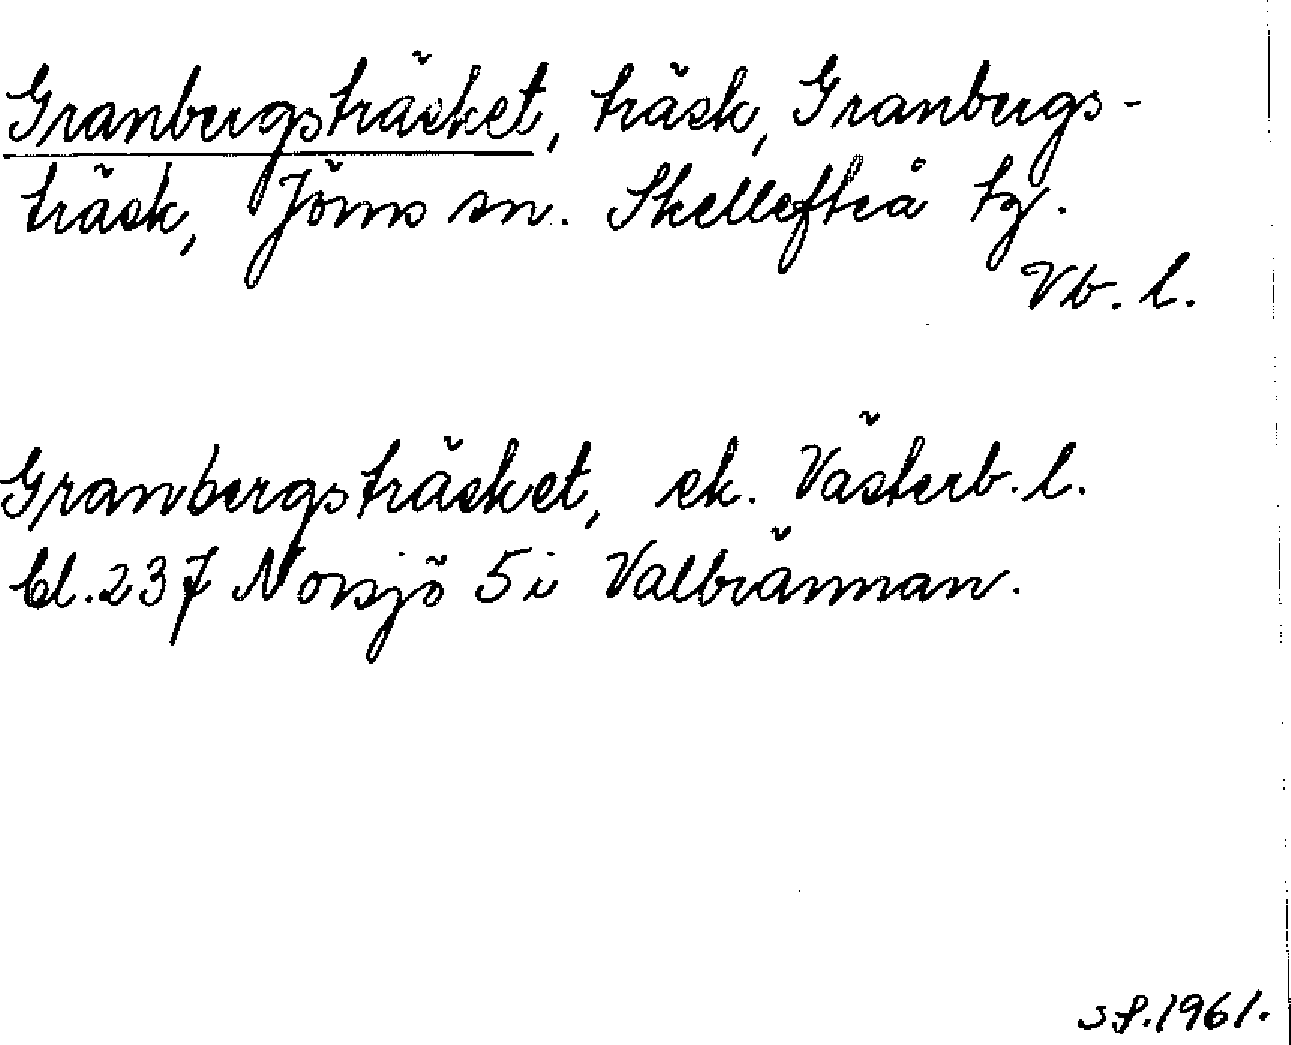 Granbergsträsket, träsk, Granbergs-
träsk, Jörns sn. Skellefteå tg.
Vb. l.
Granbergsträsket, ek. Västerb. l.
bl. 237 Norsjö 5i Valbrännan.
sf. 1961.